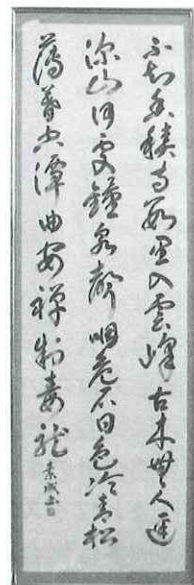 不知香積寺數里入雲峰古木無人逕
深山何處鐘泉聲咽危石日色冷青松
薄暮空潭曲安禪制毒龍